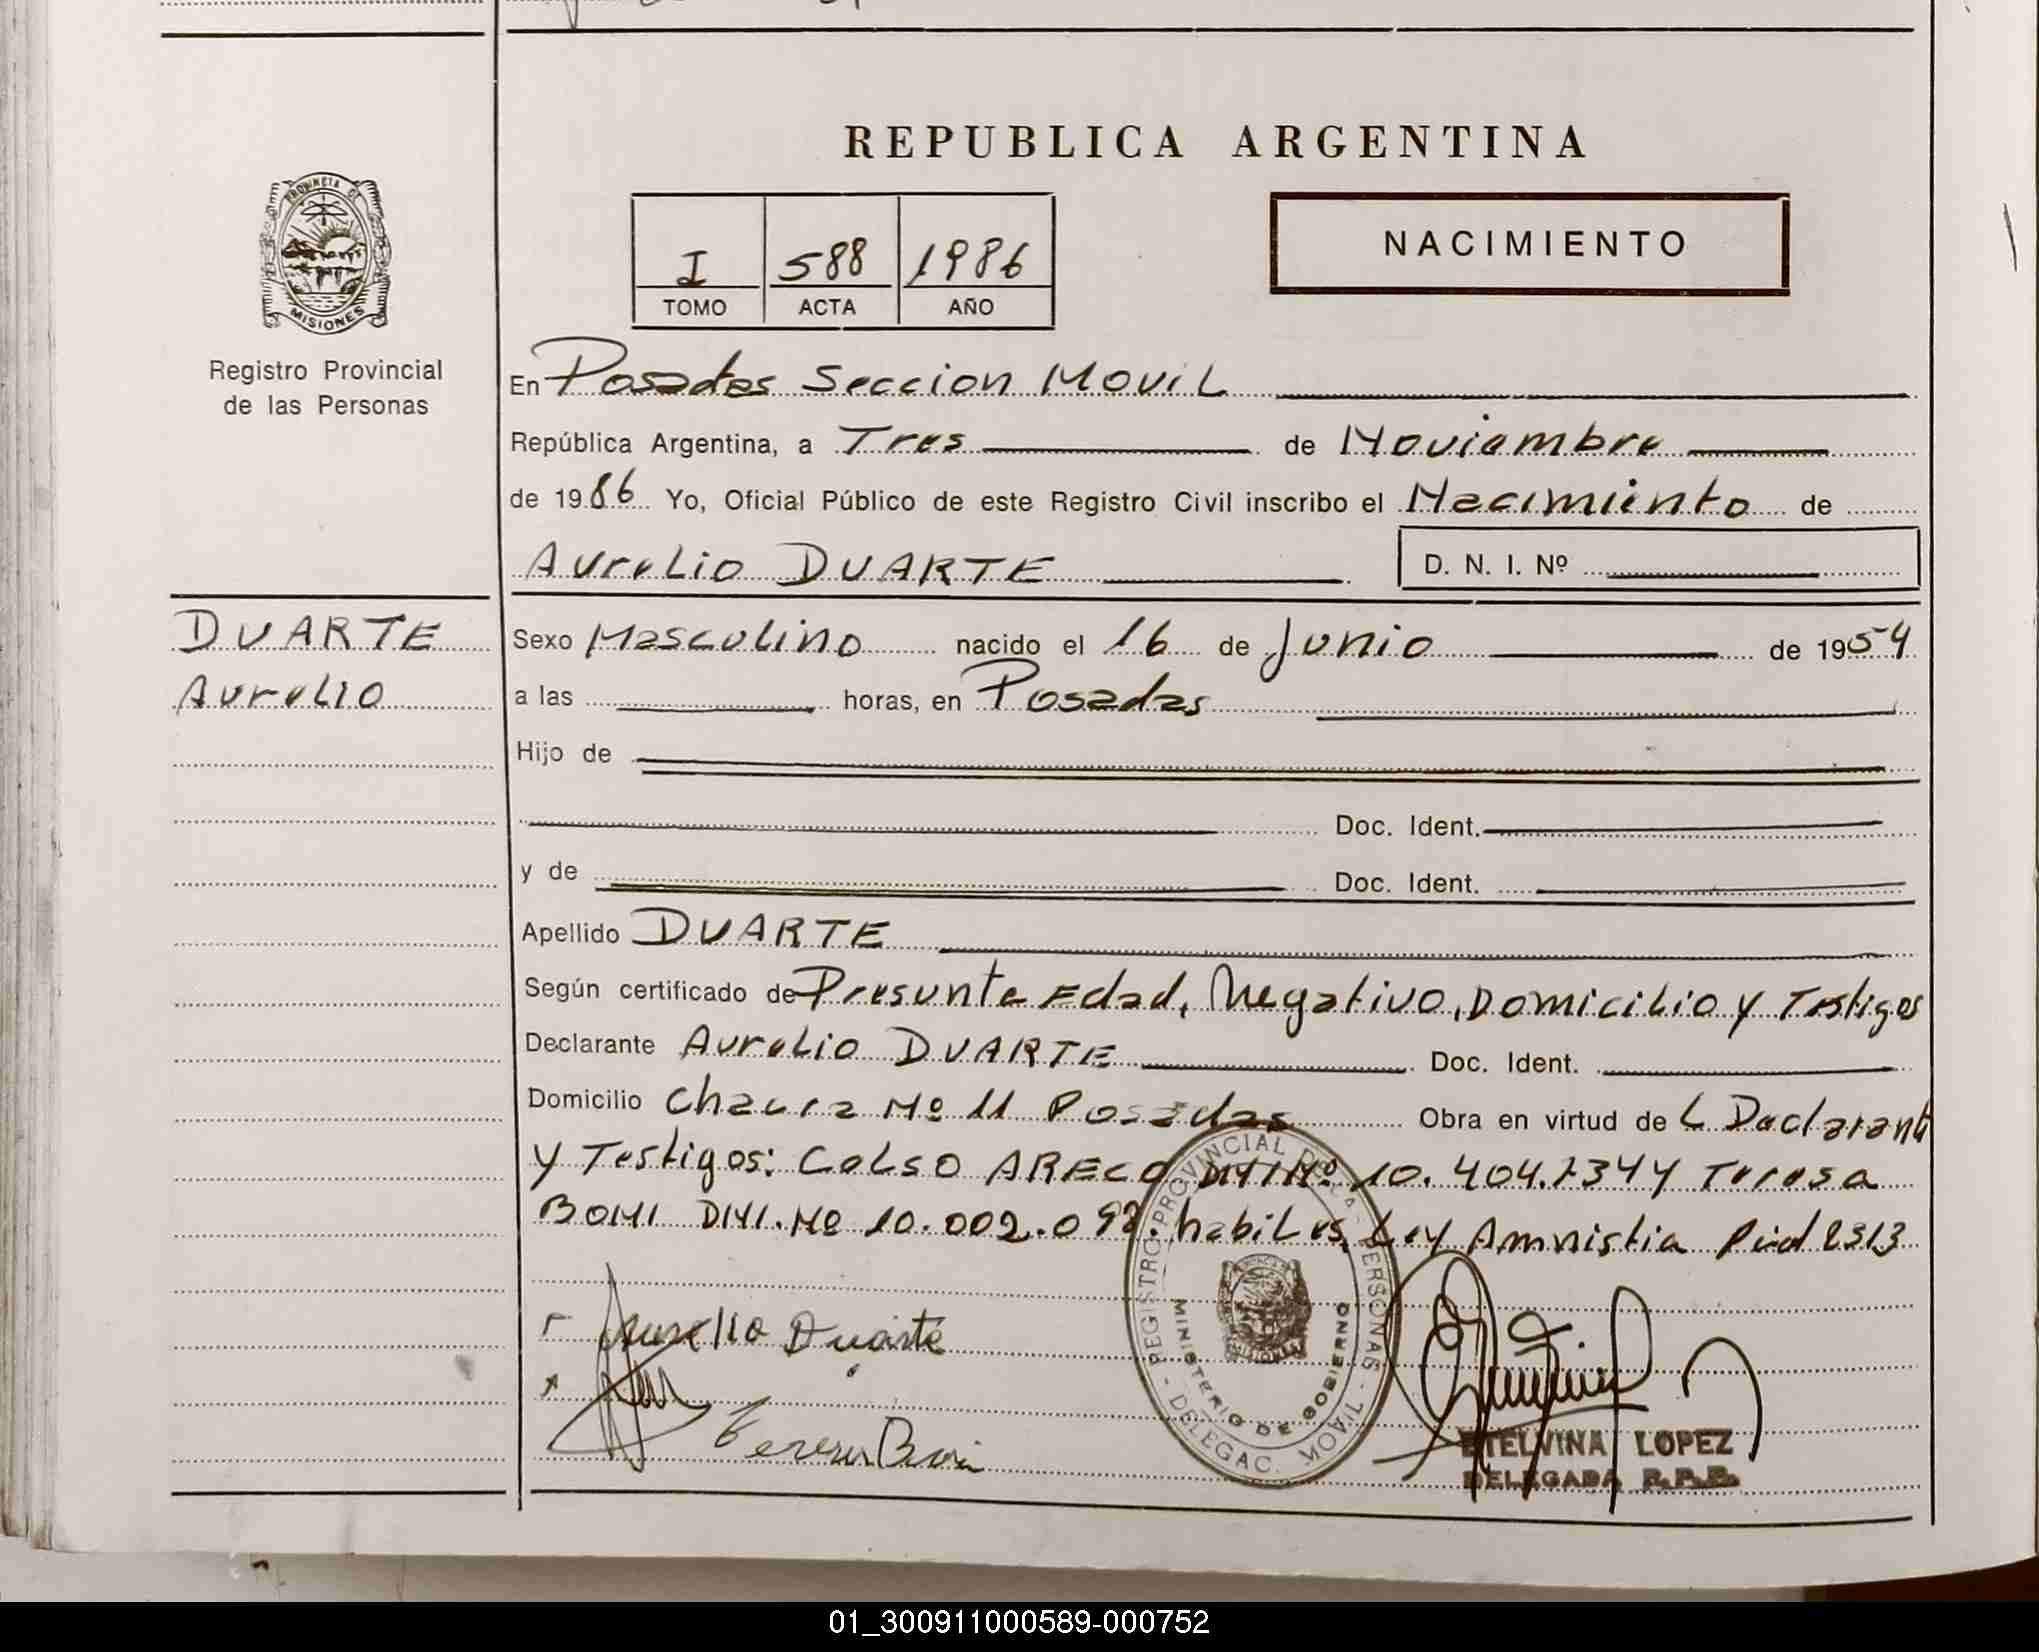 REPUBLICA ARGENTINA
PROVINCIA DE
MISIONES
Registro Provincial
de las Personas
I 588 1986
TOMO ACTA AÑO
NACIMIENTO
En Posadas Seccion Movil
República Argentina, a Tres de Noviembre
de 1986 Yo, Oficial Público de este Registro Civil inscribo el Nacimiento de
Aurelio DUARTE D. N. I. Nº
DUARTE
Aurelio
Sexo Masculino nacido el 16 de Junio de 1954
a las horas, en Posadas
Hijo de
Doc. Ident.
y de Doc. Ident.
Apellido DUARTE
Según certificado de Presunta Edad, Negativo, Domicilio y Testigos
Declarante Aurelio DUARTE Doc. Ident.
Domicilio Chacra Nº 11 Posadas Obra en virtud de L Declarante
y Testigos: Celso ARECO DNI Nº 10.404.734 y Teresa
BONI DNI. Nº 10.002.098. habiles, Ley Amnistia
Aurelio Duarte
REGISTRO PROVINCIAL DE LAS PERSONAS - DELEGAC. MOVIL -
MINISTERIO DE GOBIERNO
MISIONES
ETELVINA LOPEZ
DELEGADA R.P.P.
01_300911000589-000752